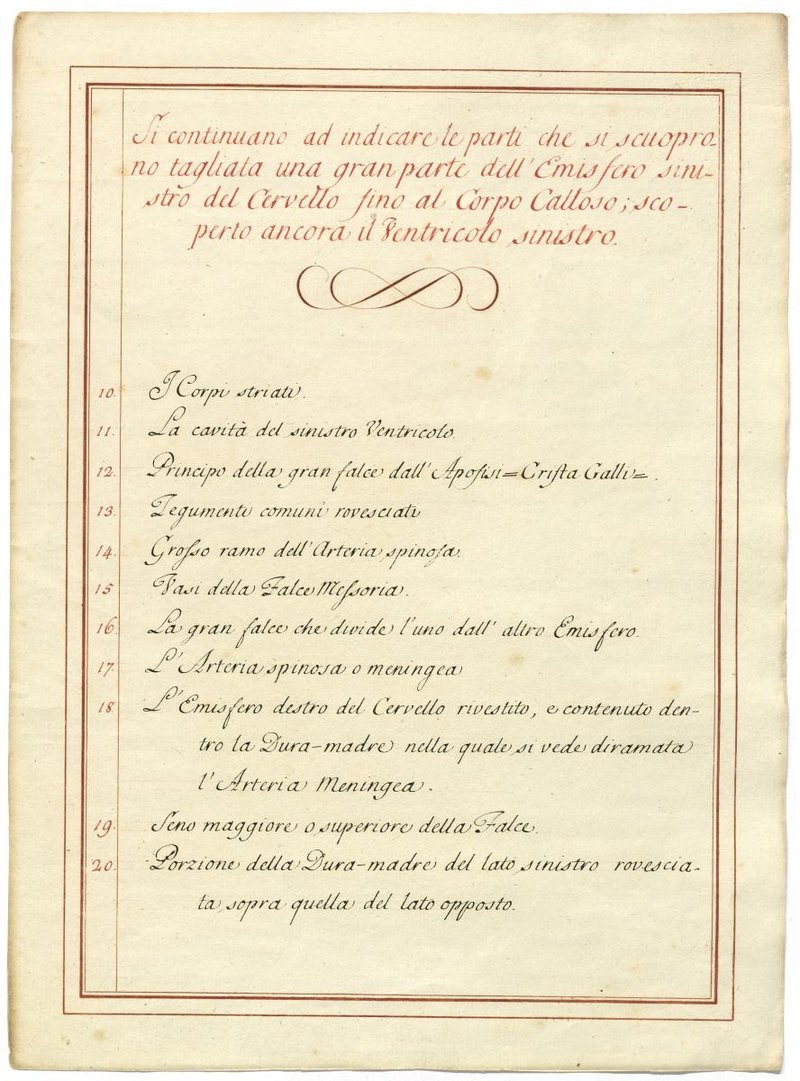 Si continuano ad indicare le parti che si scuopro-
no tagliata una gran parte dell'Emisfero sini-
stro del Cervello fino al Corpo Calloso; sco-
perto ancora il Ventricolo sinistro.
10. I Corpi striati.
11. La cavità del sinistro Ventricolo.
12. Principo della gran falce dall'Apofisi=Crista Galli=.
13. Tegumenti comuni rovesciati
14. Grosso ramo dell'Arteria spinosa.
15 Vasi della Falce Messoria.
16. La gran falce che divide l'uno dall'altro Emisfero.
17. L'Arteria spinosa o meningea
18 L'Emisfero destro del Cervello rivestito, e contenuto den-
tro la Dura-madre nella quale si vede diramata
l'Arteria Meningea.
19. Seno maggiore o superiore della Falce.
20. Porzione della Dura-madre del lato sinistro rovescia-
ta sopra quella del lato opposto.